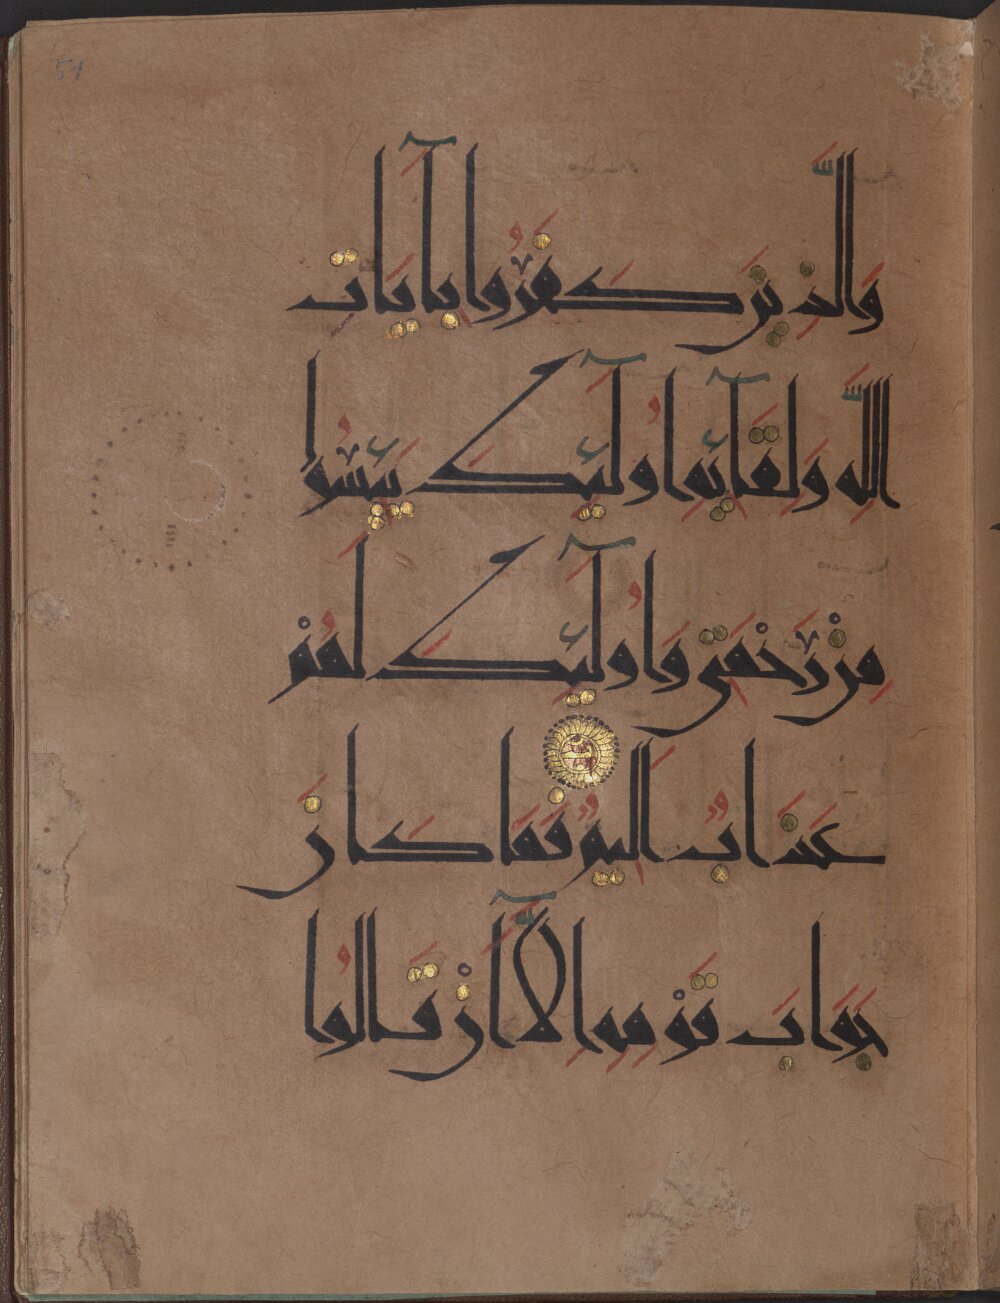 51
وَالَّذِينَ كَفَرُوا بِآيَاتِ
اللَّهِ وَلِقَآئِهِ أُولَٰٓئِكَ يَئِسُوا
مِنْ رَحْمَتِي وَأُولَٰٓئِكَ لَهُمْ
عَذَابٌ أَلِيمٌ فَمَا كَانَ
جَوَابَ قَوْمِهِ إِلَّآ أَنْ قَالُوا